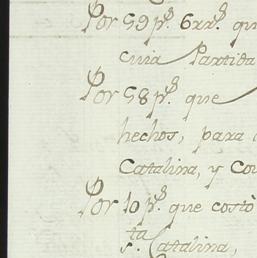 Por 59 p.s 6 rr.s qu
cuia Partida
Por 58 p.s que
hechos, para
Catalina, y Co
Por 10 p.s que costò
S.ta Catalina,